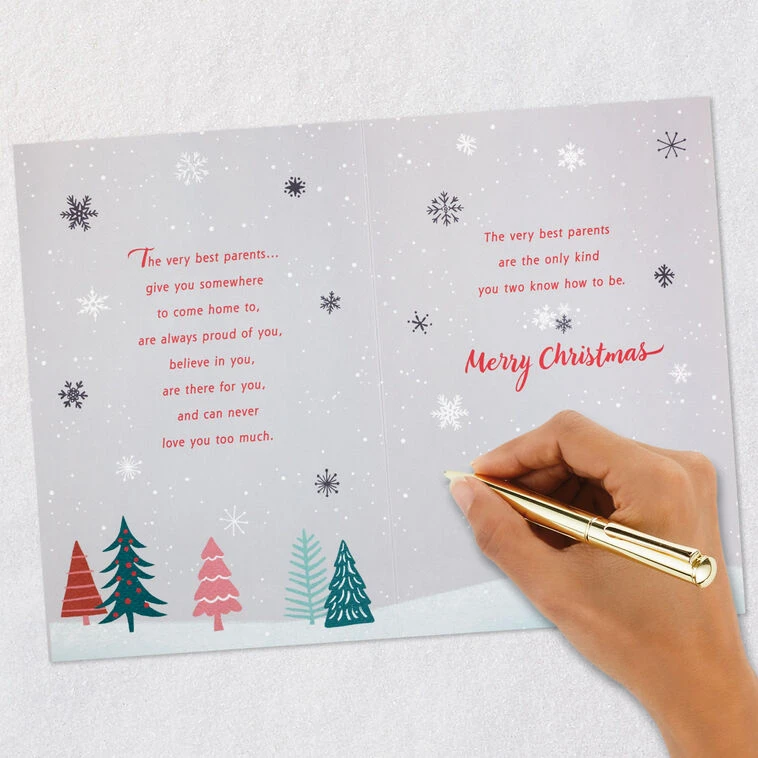 The very best parents...
give you somewhere
to come home to,
are always proud of you,
believe in you,
are there for you,
and can never
love you too much.
The very best parents
are the only kind
you two know how to be.
Merry Christmas